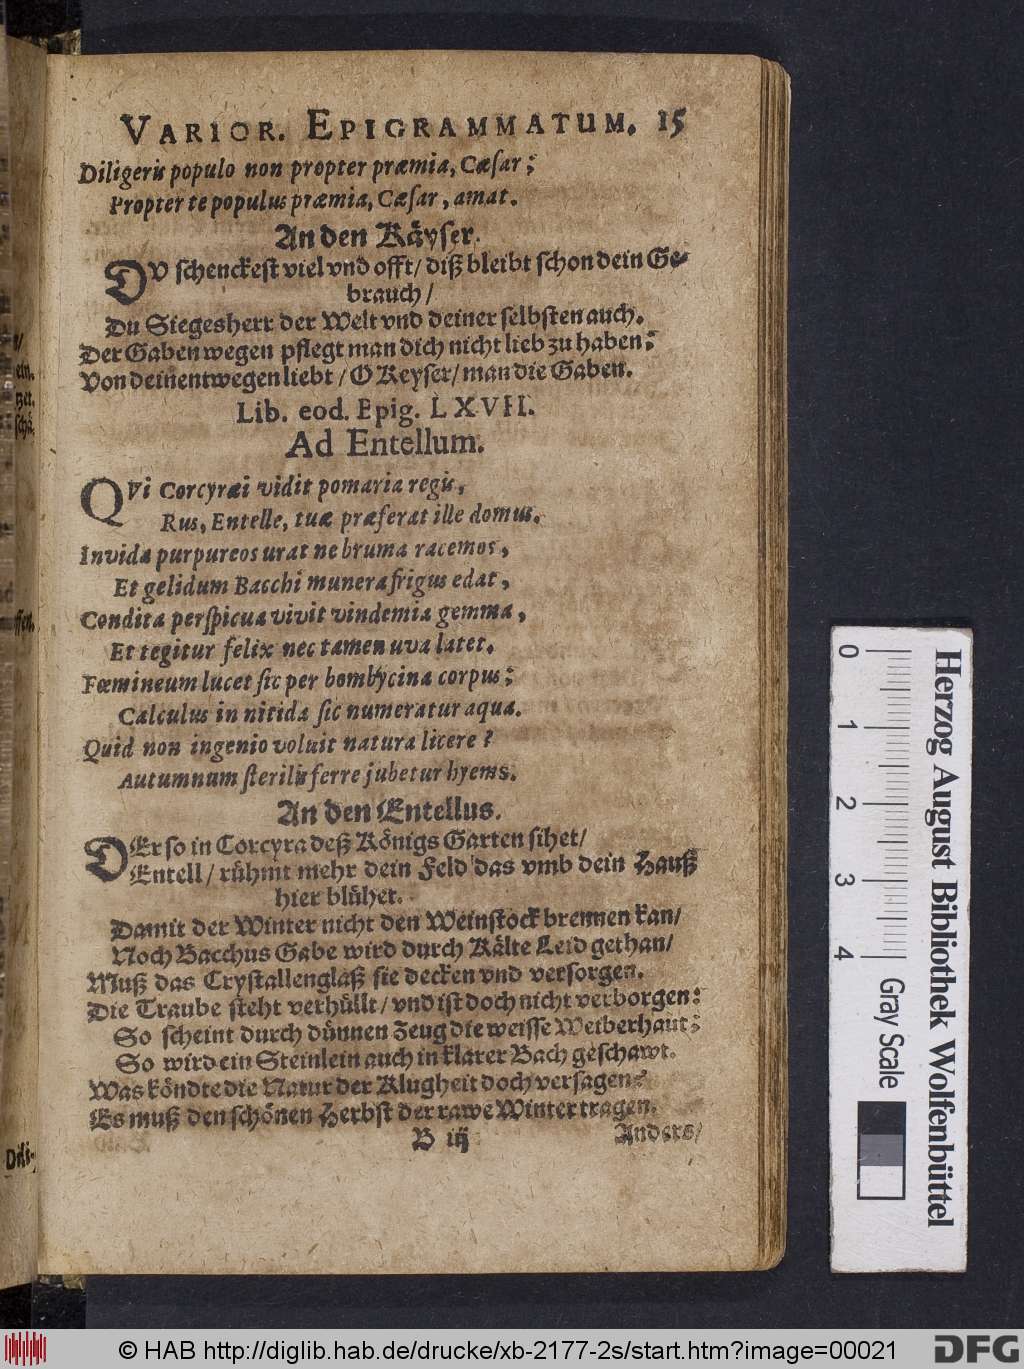 VARIOR. EPIGRAMMATUM. 15
Diligeris populo non propter præmia, Cæsar;
Propter te populus præmia, Cæsar, amat.
An den Käyser.
DV schenckest viel vnd offt/ diß bleibt schon dein Ge-
brauch/
Du Siegesherr der Welt vnd deiner selbsten auch.
Der Gaben wegen pflegt man dich nicht lieb zu haben;
Von deinentwegen liebt/ O Keyser/ man die Gaben.
Lib. eod. Epig. LXVII.
Ad Entellum.
QVi Corcyræi vidit pomaria regis,
Rus, Entelle, tuæ præferat ille domus.
Invida purpureos urat ne bruma racemos,
Et gelidum Bacchi munera frigus edat,
Condita perspicua vivit vindemia gemma,
Et tegitur felix nec tamen uva latet.
Fœmineum lucet sic per bombycina corpus;
Calculus in nitida sic numeratur aqua.
Quid non ingenio voluit natura licere?
Autumnum sterilis ferre jubetur hyems.
An den Entellus.
DEr so in Corcyra deß Königs Garten sihet/
Entell/ rühmt mehr dein Feld das vmb dein Hauß
hier blühet.
Damit der Winter nicht den Weinstock brennen kan/
Noch Bacchus Gabe wird durch Kälte Leid gethan/
Muß das Crystallenglaß sie decken vnd versorgen.
Die Traube steht verhüllt/ vnd ist doch nicht verborgen:
So scheint durch dünnen Zeug die weisse Weiberhaut;
So wird ein Steinlein auch in klarer Bach geschawt.
Was köndte die Natur der Klugheit doch versagen?
Es muß den schönen Herbst der rawe Winter tragen.
B iij
Anders/
Herzog August Bibliothek Wolfenbüttel
0 1 2 3 4
Gray Scale
© HAB http://diglib.hab.de/drucke/xb-2177-2s/start.htm?image=00021
DFG